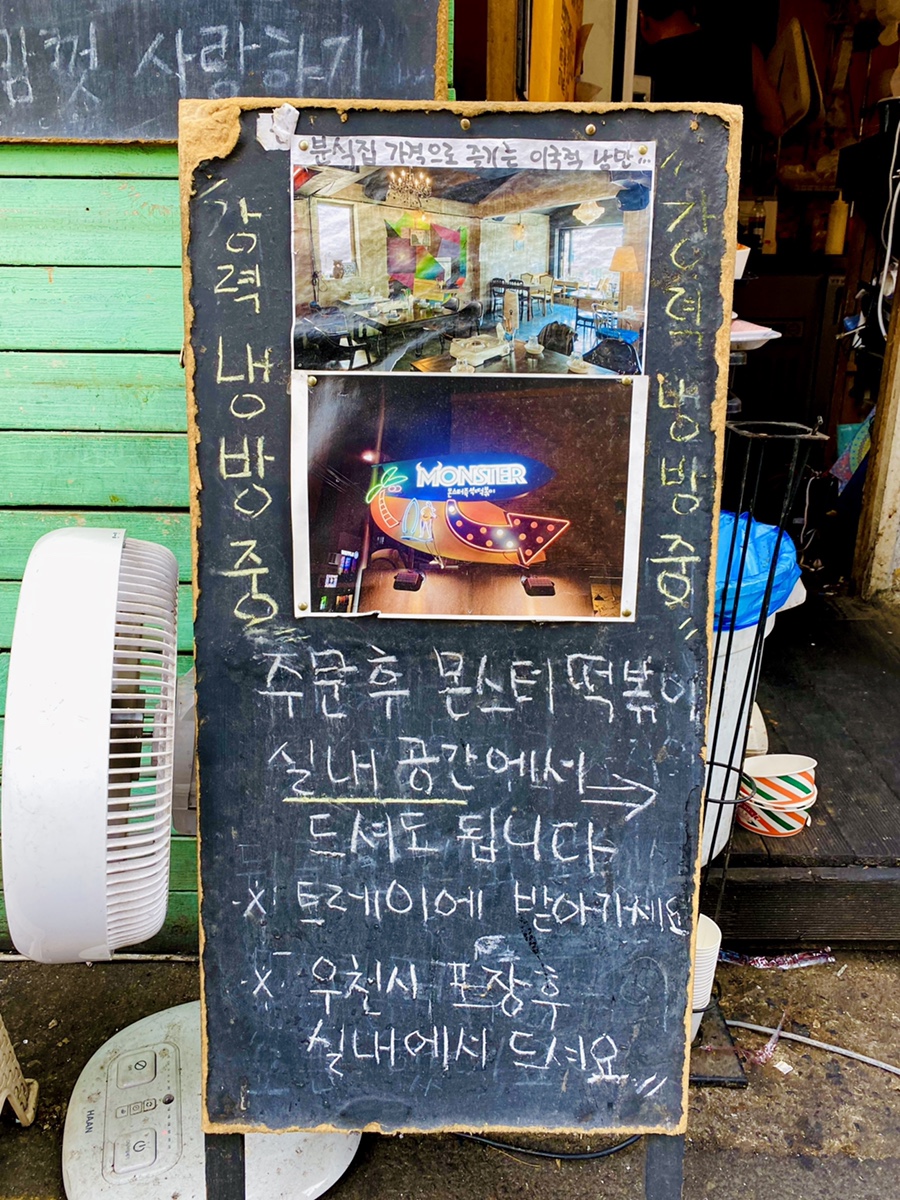 껏 사랑하기
분식집 가격으로 즐기는 이국적 낭만...
"강력 냉방 중
강력 냉방 중"
MONSTER
몬스터즉석떡볶이
주문 후 몬스터 떡볶이
실내 공간에서→
드셔도 됩니다
※ 트레이에 받아가세요
※ 우천시 포장 후
실내에서 드셔요"
HAAN